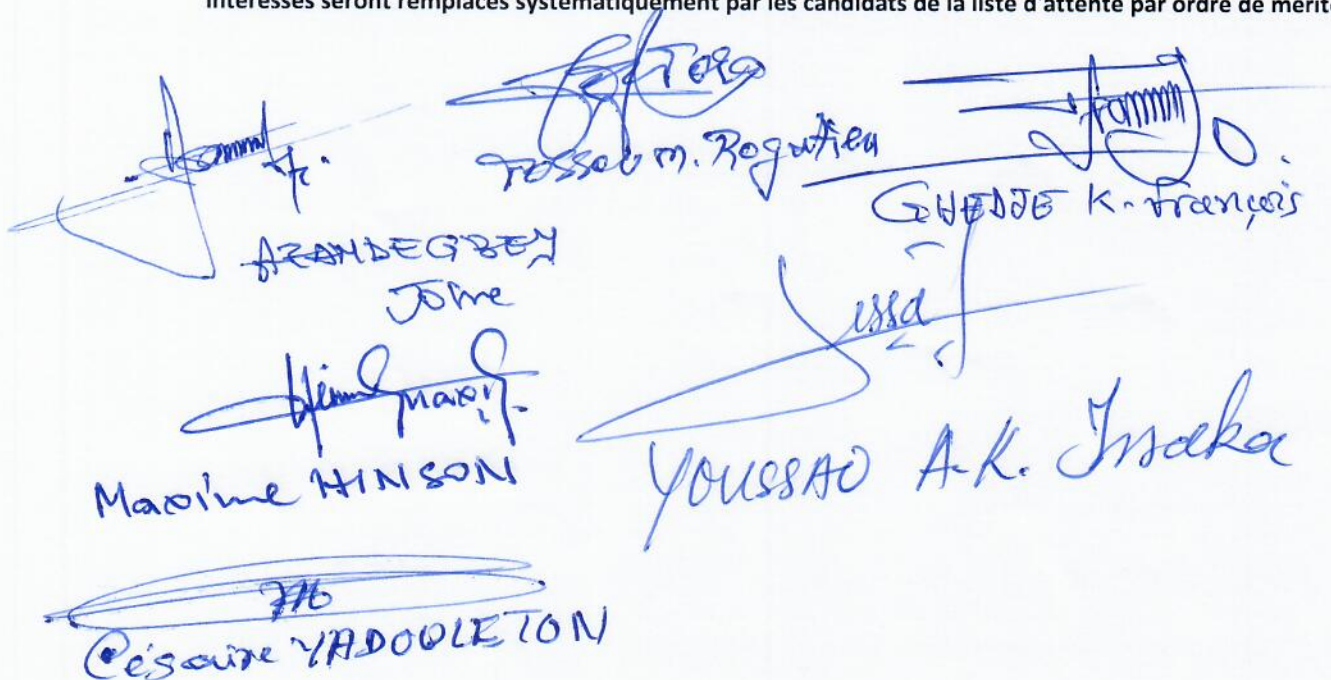 intéressés seront remplacés systématiquement par les candidats de la liste d'attente par ordre de mérite
Tossou M. Rogatien
GHEDJE K. François
AZANDEGBEY
issa
Maxime HINSON
YOUSSAO A.K. Issaka
Césaire YADOULETON